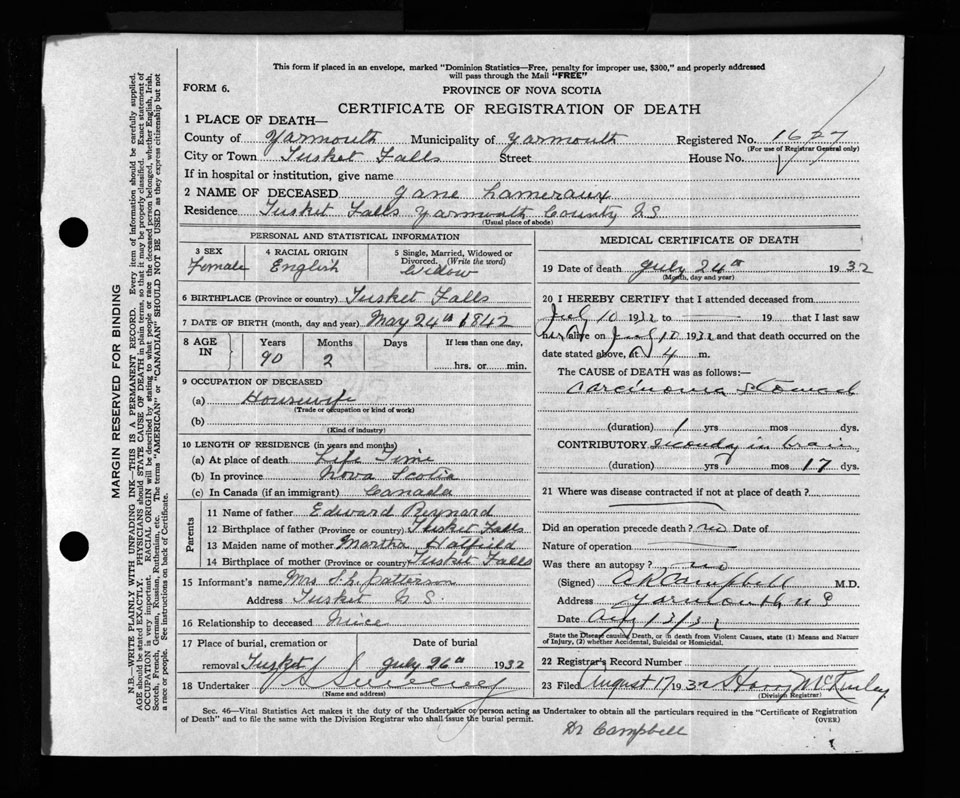 This form if placed in an envelope, marked "Dominion Statistics—Free, penalty for improper use, $300," and properly addressed
will pass through the Mail "FREE"
FORM 6.
PROVINCE OF NOVA SCOTIA
CERTIFICATE OF REGISTRATION OF DEATH
1 PLACE OF DEATH—
County of Yarmouth Municipality of Yarmouth Registered No. 1627
(For use of Registrar General only)
City or Town Tusket Falls Street House No.
If in hospital or institution, give name
2 NAME OF DECEASED Jane Lameraux
Residence Tusket Falls Yarmouth County N.S.
(Usual place of abode)
PERSONAL AND STATISTICAL INFORMATION
3 SEX Female
4 RACIAL ORIGIN English
5 Single, Married, Widowed or Divorced. (Write the word) Widow
6 BIRTHPLACE (Province or country) Tusket Falls
7 DATE OF BIRTH (month, day and year) May 24th 1842
8 AGE IN Years 90 Months 2 Days If less than one day, hrs. or min.
9 OCCUPATION OF DECEASED
(a) Housewife
(Trade or occupation or kind of work)
(b)
(Kind of industry)
10 LENGTH OF RESIDENCE (in years and months)
(a) At place of death Life Time
(b) In province Nova Scotia
(c) In Canada (if an immigrant) Canada
Parents
11 Name of father Edward Reynard
12 Birthplace of father (Province or country) Tusket Falls
13 Maiden name of mother Martha Hatfield
14 Birthplace of mother (Province or country) Tusket Falls
15 Informant's name Mrs. Patterson
Address Tusket N.S.
16 Relationship to deceased niece
17 Place of burial, cremation or removal Tusket Date of burial July 26th 1932
18 Undertaker Sweeney
(Name and address)
MEDICAL CERTIFICATE OF DEATH
19 Date of death July 24th 1932
(Month, day and year)
20 I HEREBY CERTIFY that I attended deceased from
July 10 1932 to — 19 that I last saw
her alive on July 10 1932 and that death occurred on the
date stated above, at 4 m.
The CAUSE of DEATH was as follows:—
Carcinoma stomach
(duration) 1 yrs mos dys.
CONTRIBUTORY secondary in brain
(duration) yrs mos 17 dys.
21 Where was disease contracted if not at place of death?
Did an operation precede death? no Date of
Nature of operation
Was there an autopsy? no
(Signed) A R Campbell M.D.
Address Yarmouth N S
Date
State the Disease causing Death, or in death from Violent Causes, state (1) Means and Nature
of Injury, (2) whether Accidental, Suicidal or Homicidal.
22 Registrar's Record Number
23 Filed August 17 1932 Harry McKinley
(Division Registrar)
Sec. 46—Vital Statistics Act makes it the duty of the Undertaker or person acting as Undertaker to obtain all the particulars required in the "Certificate of Registration
of Death" and to file the same with the Division Registrar who shall issue the burial permit.
(OVER)
Dr Campbell
MARGIN RESERVED FOR BINDING
N.B.—WRITE PLAINLY WITH UNFADING INK—THIS IS A PERMANENT RECORD. Every item of information should be carefully supplied.
AGE should be stated EXACTLY. PHYSICIANS should STATE CAUSE OF DEATH in plain terms, so that it may be properly classified. Exact statement of
OCCUPATION is very important. RACIAL ORIGIN will be described by stating to what people or race the deceased person belonged, whether English, Irish,
Scotch, French, German, Russian, Ruthenian, etc. The terms "AMERICAN" or "CANADIAN" SHOULD NOT BE USED as they express citizenship but not
a race or people. See instructions on back of Certificate.